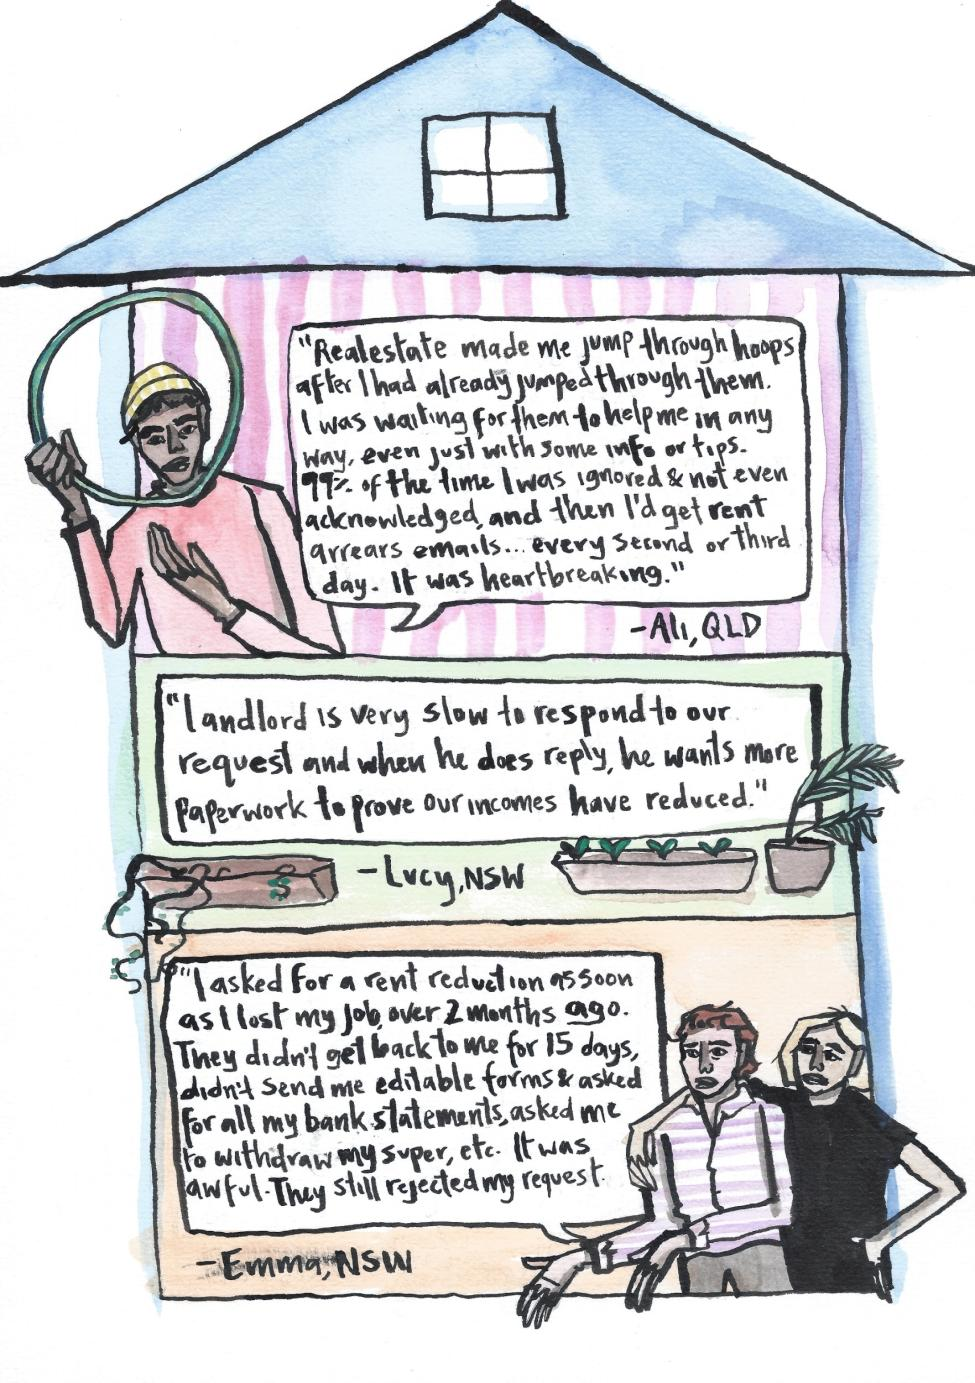 "Realestate made me jump through hoops
after I had already jumped through them.
I was waiting for them to help me in any
way, even just with some info or tips.
99% of the time I was ignored & not even
acknowledged, and then I'd get rent
arrears emails... every second or third
day. It was heartbreaking."
-Ali, QLD
"Landlord is very slow to respond to our
request and when he does reply, he wants more
paperwork to prove our incomes have reduced."
-Lucy, NSW
$
"I asked for a rent reduction as soon
as I lost my job, over 2 months ago.
They didn't get back to me for 15 days,
didn't send me editable forms & asked
for all my bank statements, asked me
to withdraw my super, etc. It was
awful. They still rejected my request.
-Emma, NSW